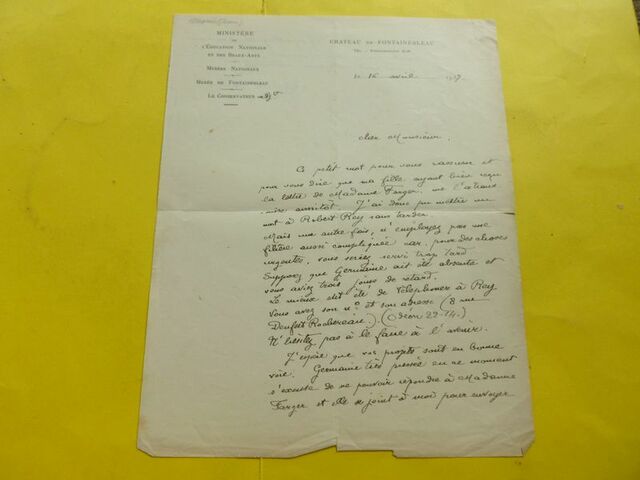 MINISTÈRE
DE
L'ÉDUCATION NATIONALE
ET DES BEAUX-ARTS
MUSÉES NATIONAUX
MUSÉE DE FONTAINEBLEAU
LE CONSERVATEUR
CHATEAU DE FONTAINEBLEAU
le 12 avril 1937
Cher Monsieur,
Ce petit mot pour vous rassurer et
pour vous dire que ma fille ayant bien reçu
la lettre de Madame Farger, me l'a trans-
mise aussitôt. J'ai donc pu mettre un
mot à Robert Rey sans tarder.
Mais une autre fois, n'employez pas une
filière aussi compliquée car, pour des choses
urgentes, vous seriez servi trop tard
Supposez que Germaine ait été absente et
vous aviez trois jours de retard.
Le mieux eût été de téléphoner à Rey
Vous avez son n° et son adresse (8 rue
Denfert Rochereau.) (Odéon 29-14.)
N'hésitez pas à le faire à l'avenir.
J'espère que vos projets sont en bonne
voie. Germaine très pressée en ce moment
s'excuse de ne pouvoir répondre à Madame
Farger et elle se joint à moi pour envoyer